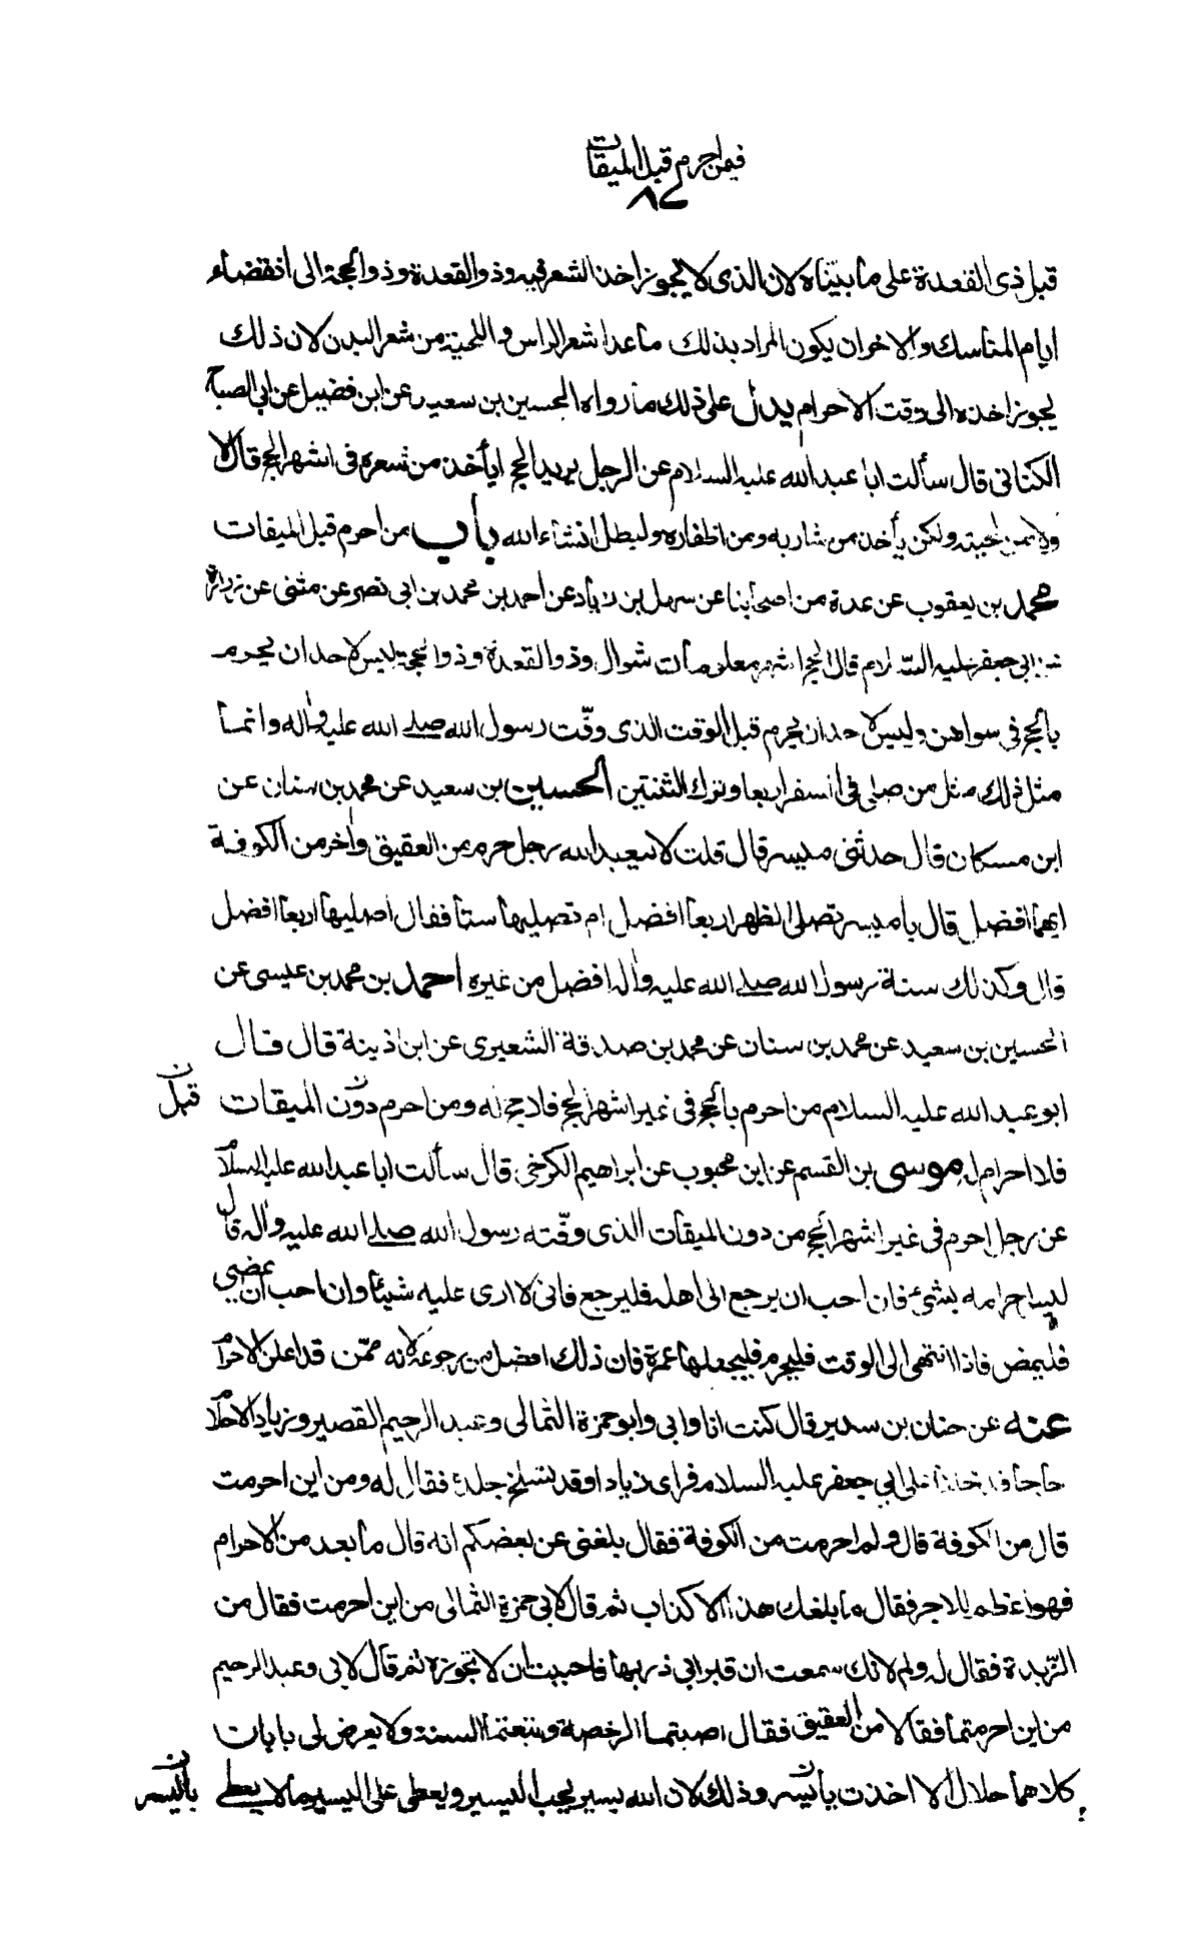 فيمن احرم قبل الميقات
٨٧
قبل ذى القعدة على ما بيّناه لان الذى لا يجوز اخذ الشعر فيه وذو القعدة وذو الحجة الى انقضاء
ايام المناسك والاخر ان يكون المراد بذلك ما عدا شعر الراس واللحية من شعر البدن لان ذلك
يجوز اخذه الى وقت الاحرام يدل على ذلك ما رواه الحسين بن سعيد عن ابن فضيل عن ابى الصباح
الكنانى قال سألت ابا عبدالله عليه السلام عن الرجل يريد الحج ايأخذ من شعره فى اشهر الحج قال لا
ولا من لحيته ولكن يأخذ من شاربه ومن اظفاره وليطل انشاء الله باب من احرم قبل الميقات
محمد بن يعقوب عن عدة من اصحابنا عن سهل بن زياد عن احمد بن محمد بن ابى نصر عن مثنى عن زرارة
عن ابى جعفر عليه السلام قال الحج اشهر معلومات شوال وذو القعدة وذو الحجة ليس لاحد ان يحرم
بالحج فى سواهن وليس لاحد ان يحرم قبل الوقت الذى وقّت رسول الله صلى الله عليه واله وانما
مثل ذلك مثل من صلى فى السفر اربعا وترك الثنتين الحسين بن سعيد عن محمد بن سنان عن
ابن مسكان قال حدثنى ميسر قال قلت لابيعبدالله رجل احرم من العقيق واخر من الكوفة
ايهما افضل قال يا ميسر تصلى الظهر اربعا افضل ام تصليها ستا فقال اصليها اربعا افضل
قال وكذلك سنة رسول الله صلى الله عليه واله افضل من غيره احمد بن محمد بن عيسى عن
الحسين بن سعيد عن محمد بن سنان عن محمد بن صدقة الشعيرى عن ابن اذينة قال قال
ابو عبدالله عليه السلام من احرم بالحج فى غير اشهر الحج فلا حج له ومن احرم دون الميقات
قبل ن
فلا احرام له موسى بن القسم عن ابن محبوب عن ابراهيم الكرخى قال سألت ابا عبدالله عليه السلام
عن رجل احرم فى غير اشهر الحج من دون الميقات الذى وقّته رسول الله صلى الله عليه واله قال
ليس احرامه بشئ فان احب ان يرجع الى اهله فليرجع فانى لا ارى عليه شيئا وان احب ان يمضى
فليمض فاذا انتهى الى الوقت فليحرم فليجعلها عمرة فان ذلك افضل من رجوعه لانه ممّن قد اعلن الاحرام
عنه عن حنان بن سدير قال كنت انا وابى وابو حمزة الثمالى وعبد الرحيم القصير وزياد الاحلام
حاجا فدخلنا على ابى جعفر عليه السلام فراى زيادا وقد تسلخ جلده فقال له ومن اين احرمت
قال من الكوفة قال ولم احرمت من الكوفة فقال بلغنى عن بعضكم انه قال ما بعد من الاحرام
فهو اعظم للاجر فقال ما بلغك هذا الا كذاب ثم قال لابى حمزة الثمالى من اين احرمت فقال من
الربذة فقال له ولم لانك سمعت ان قبر ابى ذر بها فاحببت ان لا تجوزه ثم قال لابى وعبد الرحيم
من اين احرمتما فقالا من العقيق فقال اصبتما الرخصة وتبعتما السنة ولا يعرض لى بابان
كلاهما حلال الا اخذت باليسر وذلك لان الله يسير يحب اليسير ويعطى على اليسير ما لا يعطى
باليسر ن